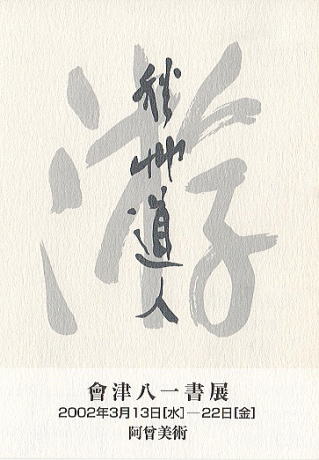 游
秋艸道人
會津八一書展
2002年3月13日[水]―22日[金]
阿曾美術